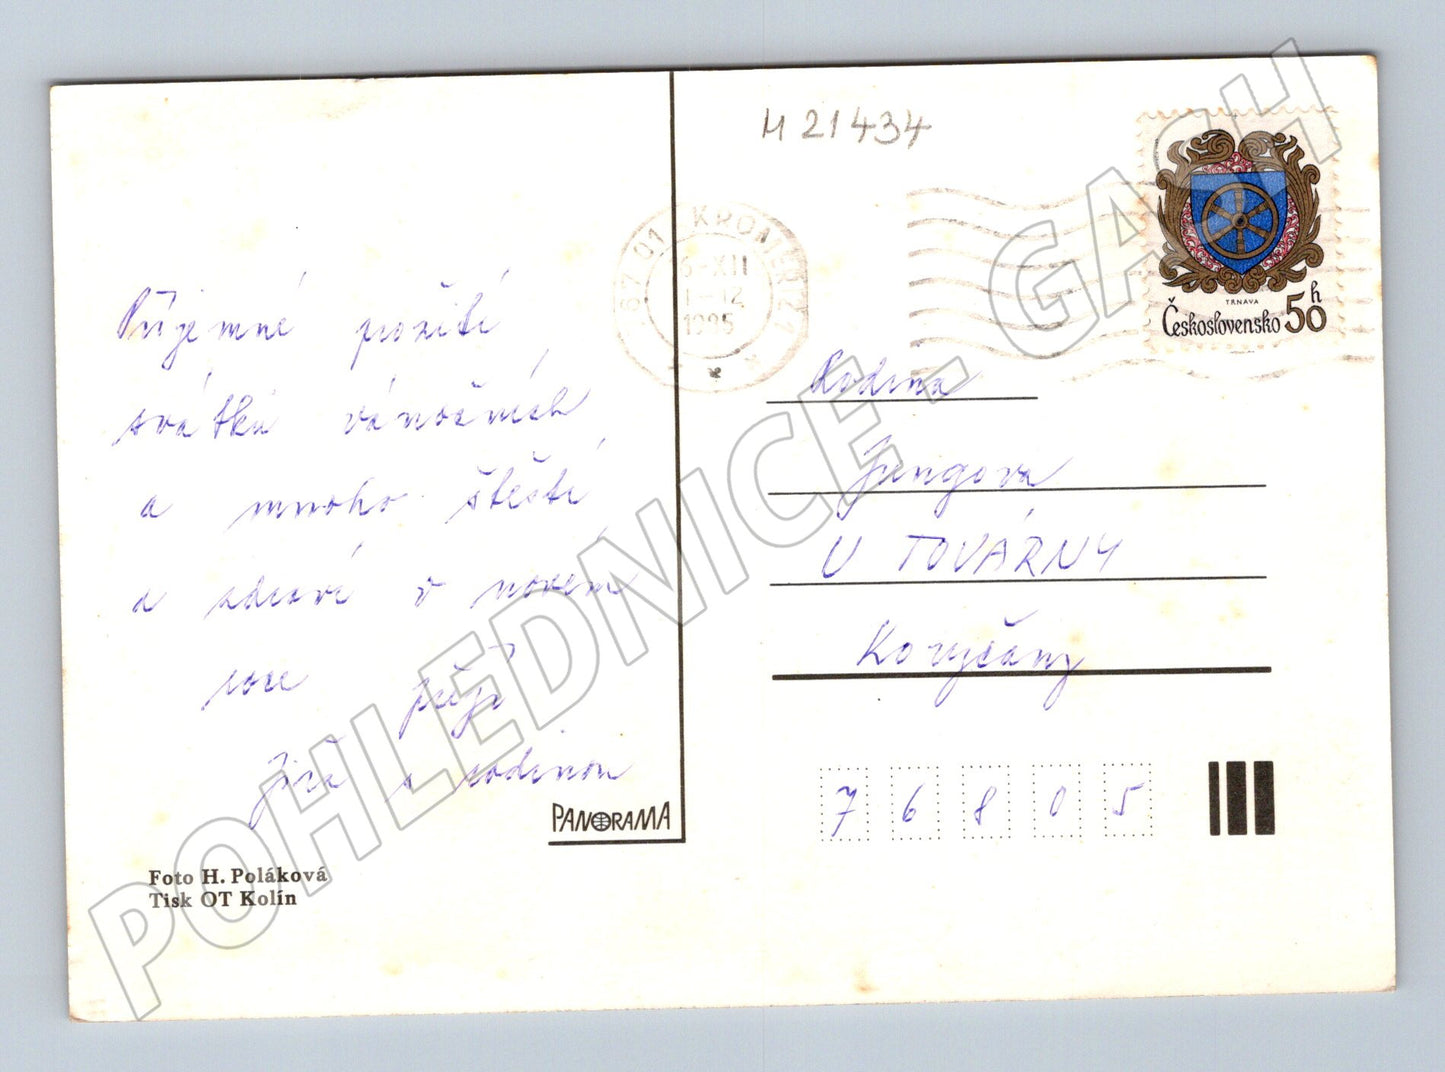 M 21434
767 01 KROMĚŘÍŽ 1
6-XII
1-12
TRNAVA
Československo 50 h
Příjemné prožití
svátků vánočních
a mnoho štěstí
a zdraví v novém
roce přejí
Jiří s rodinou
PANORAMA
Foto H. Poláková
Tisk OT Kolín
Rodina
Jungova
U TOVÁRNY
Koryčany
7 6 8 0 5
POHLEDNICE - GASH